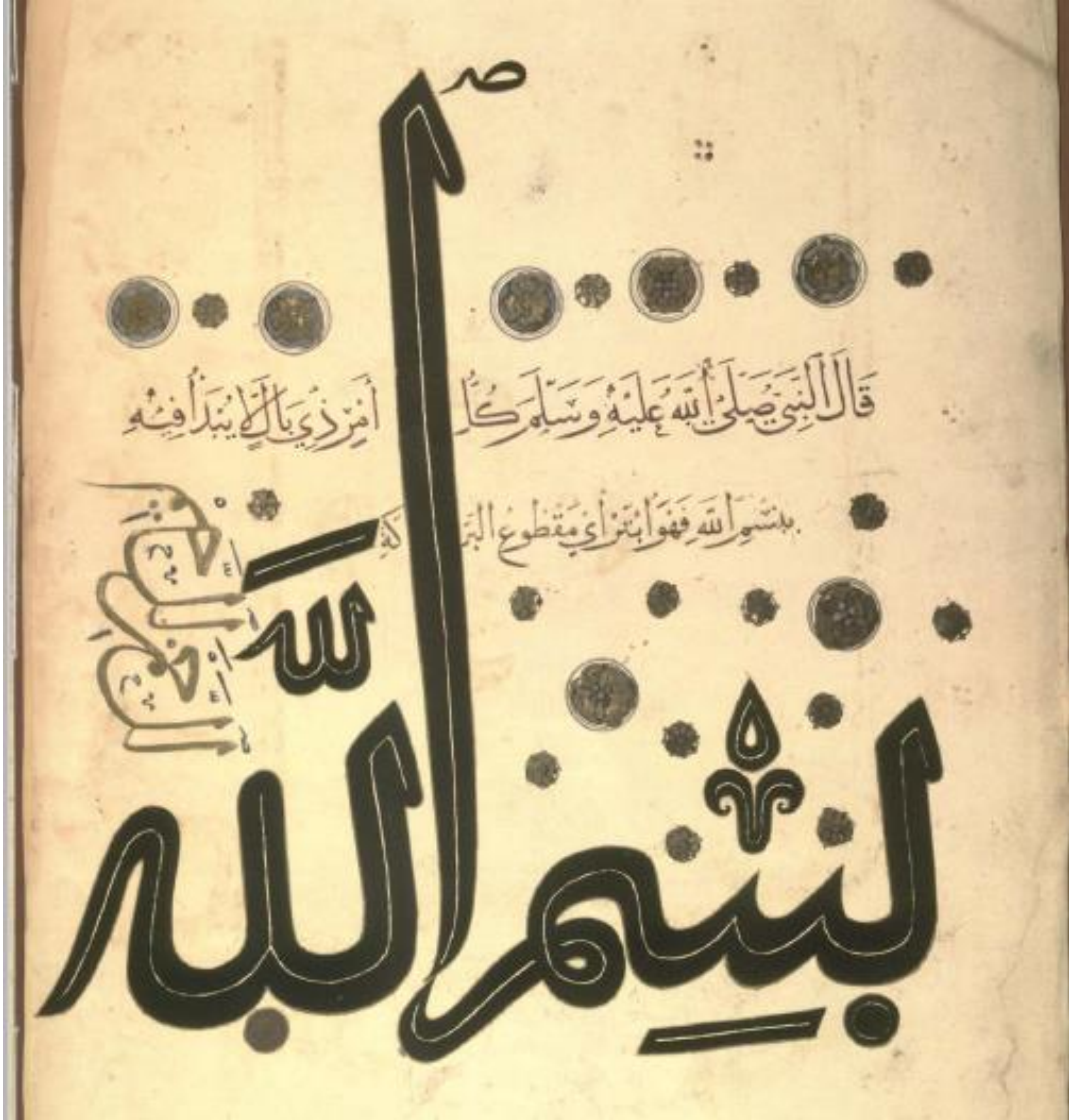 قَالَ النَّبِيُّ صَلَّى اللَّهُ عَلَيْهِ وَسَلَّمَ كُلُّ أَمْرٍ ذِي بَالٍ لَا يُبْدَأُ فِيْهِ
بِبِسْمِ اللَّهِ فَهُوَ أَبْتَرُ أَيْ مَقْطُوعُ الْبَرَكَةِ
بِسْمِ اللَّهِ
الرَّحْمٰنِ الرَّحِيمِ